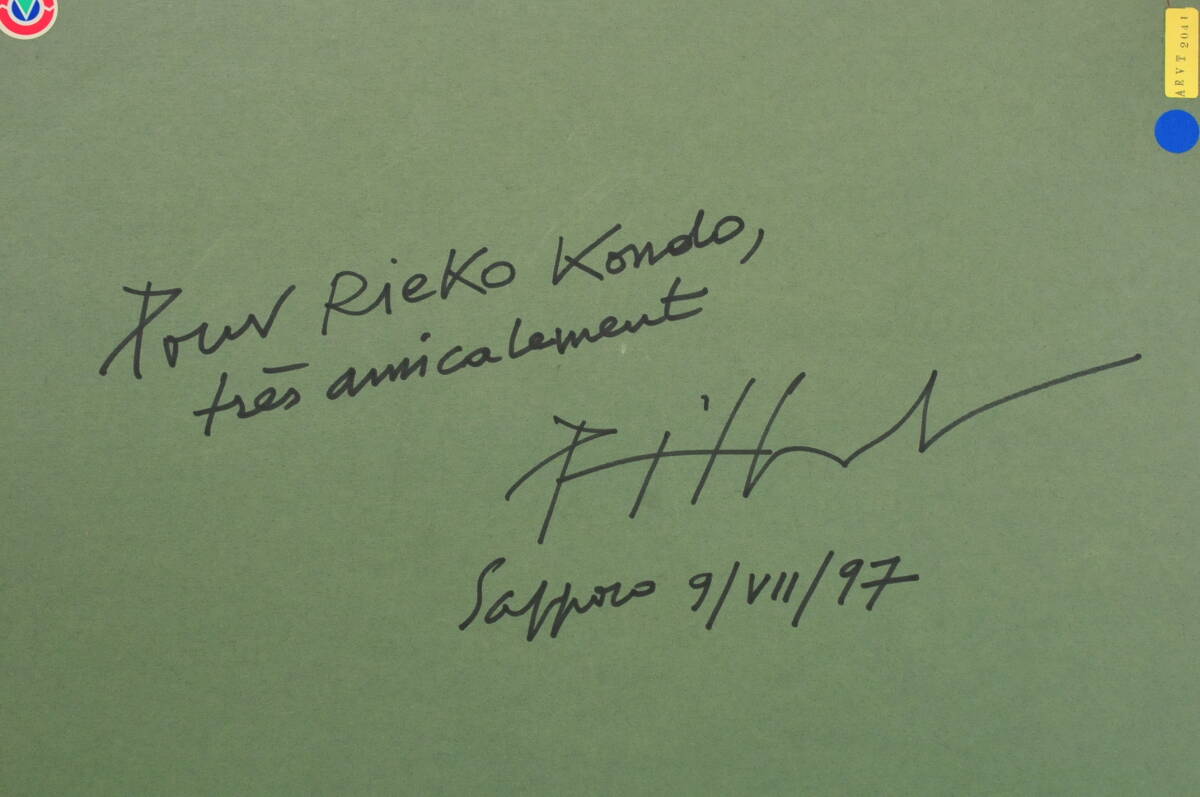 AEVT 2041
Pour Rieko Kondo,
très amicalement
Sapporo 9/VII/97